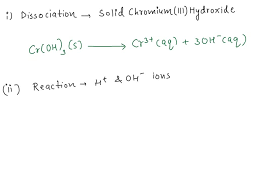 i) Dissociation → Solid Chromium(III) Hydroxide
Cr(OH)₃(s) ⟶ Cr³⁺(aq) + 3OH⁻(aq)
(ii) Reaction → H⁺ & OH⁻ ions